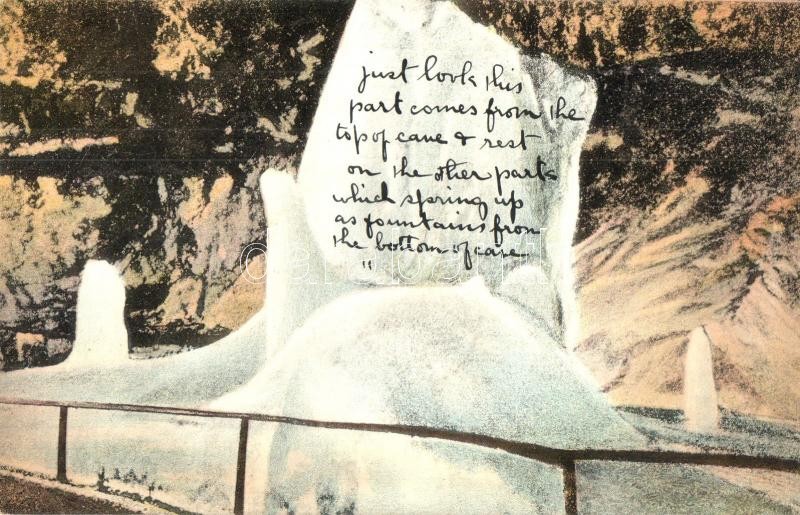 just look this
part comes from the
top of cave & rest
on the other parts
which spring up
as fountains from
the bottom of cave
"